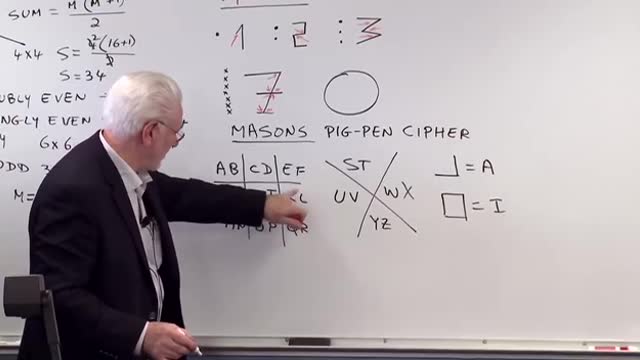 SUM = M(M²+1) / 2
4×4 S = 4(16+1) / 2
S = 34
UBLY EVEN
NGLY EVEN
ODD 6×6
M =
1 : 2 3
7
MASONS PIG-PEN CIPHER
AB CD EF
QR
ST
UV WX
YZ
= A
= I